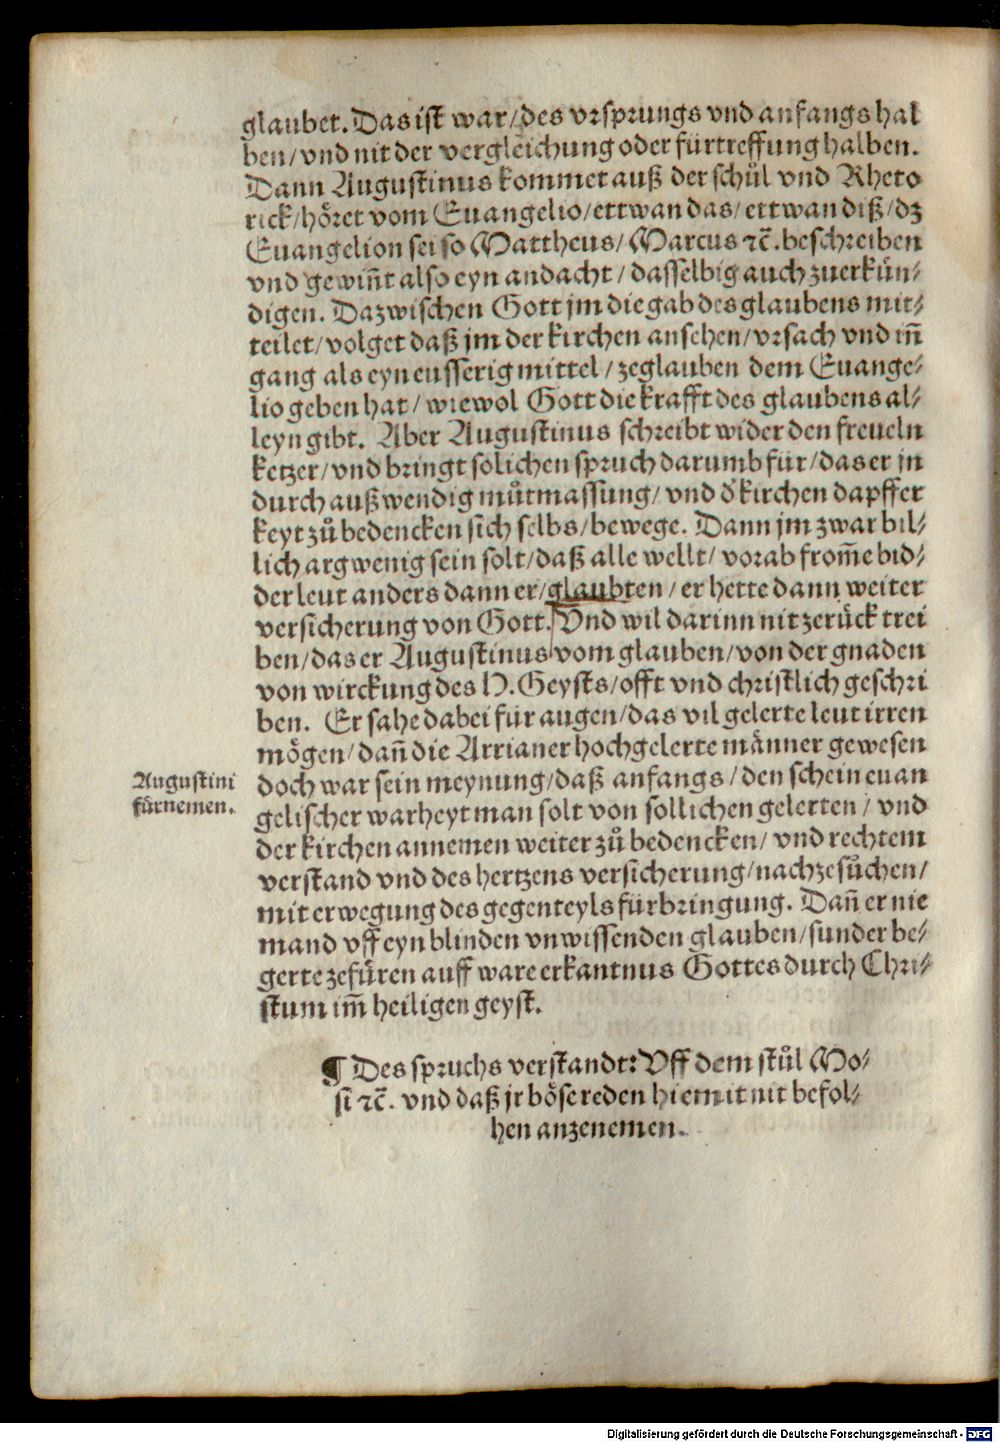 glaubet. Das ist war/des vrsprungs vnd anfangs hal
ben/vnd nit der vergleichung oder fürtreffung halben.
Dann Augustinus kommet auß der schůl vnd Rheto
rick/höret vom Euangelio/ettwan das/ettwan diß/dz
Euangelion sei so Mattheus/Marcus ꝛc̄. beschreiben
vnd gewiñt also eyn andacht/dasselbig auch zuerkün⸗
digen. Dazwischen Gott jm die gab des glaubens mit⸗
teilet/volget daß jm der kirchen ansehen/vrsach vnd iñ
gang als eyn eusserig mittel/zeglauben dem Euange⸗
lio geben hat/wiewol Gott die krafft des glaubens al⸗
leyn gibt. Aber Augustinus schreibt wider den freueln
ketzer/vnd bringt solichen spruch darumb für/das er jn
durch außwendig můtmassung/vnd d' kirchen dapffer
keyt zů bedencken sich selbs/bewege. Dann jm zwar bil⸗
lich argwenig sein solt/daß alle wellt/vorab from̃e bid⸗
der leut anders dann er/glaubten/er hette dann weiter
versicherung von Gott. Vnd wil darinn nit zerück trei
ben/das er Augustinus vom glauben/von der gnaden
von wirckung des H. Geysts/offt vnd christlich geschri
ben. Er sahe dabei für augen/das vil gelerte leut irren
mögen/dañ die Arrianer hochgelerte männer gewesen
Augustini
fürnemen.
doch war sein meynung/daß anfangs/den schein euan
gelischer warheyt man solt von sollichen gelerten/vnd
der kirchen annemen weiter zů bedencken/vnd rechtem
verstand vnd des hertzens versicherung/nachzesůchen/
mit erwegung des gegenteyls fürbringung. Dañ er nie
mand vff eyn blinden vnwissenden glauben/sunder be⸗
gerte zefüren auff ware erkantnus Gottes durch Chri⸗
stum im̃ heiligen geyst.
¶ Des spruchs verstandt: Vff dem stůl Mo⸗
si ꝛc̄. vnd daß jr böse reden hiemit nit befol⸗
hen anzenemen.
Digitalisierung gefördert durch die Deutsche Forschungsgemeinschaft - DFG